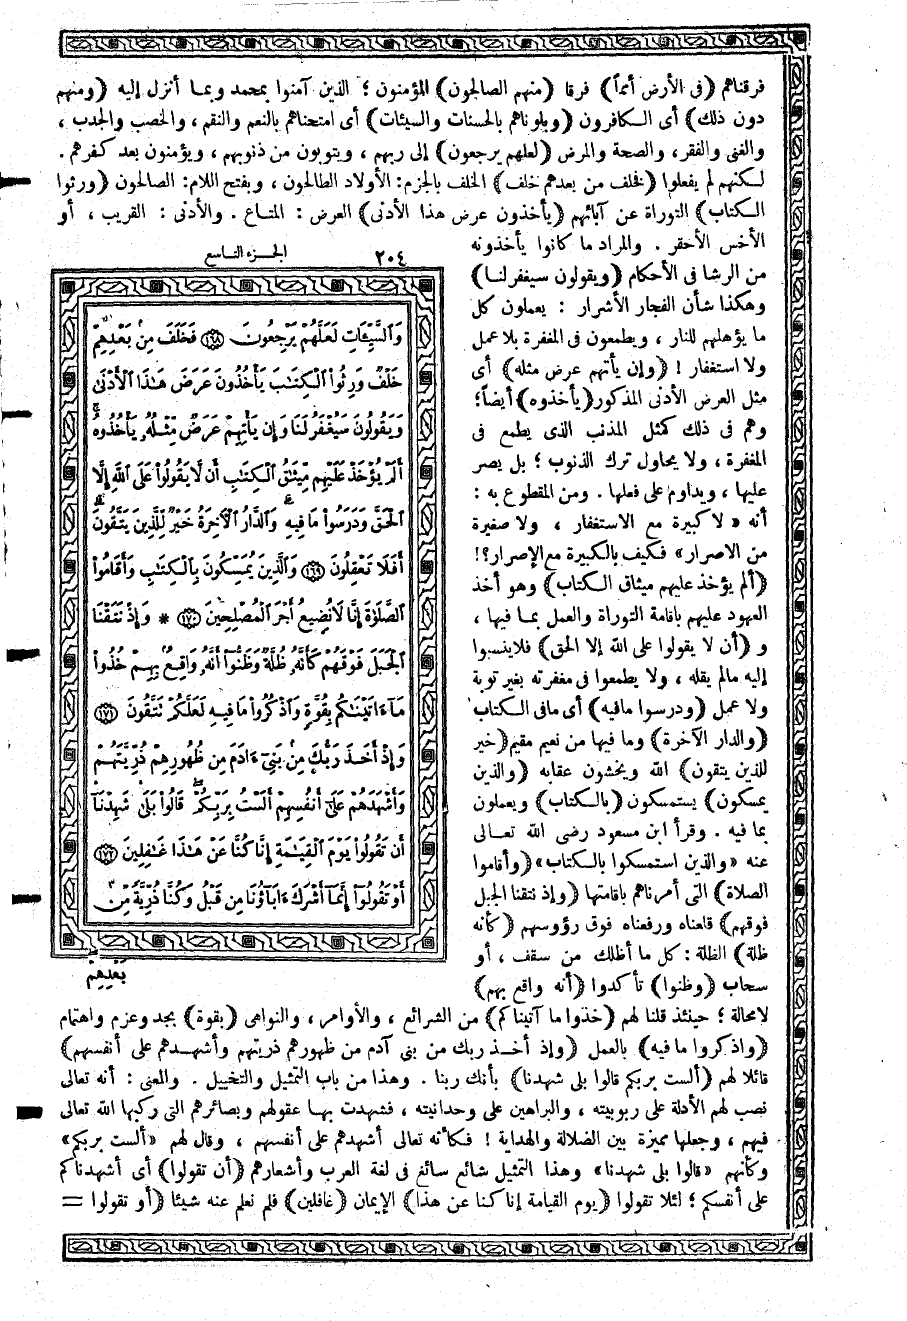 فرقناهم (فى الأرض أمماً) فرقا (منهم الصالحون) المؤمنون ؛ الذين آمنوا بمحمد وبما أنزل إليه (ومنهم
دون ذلك) أى الكافرون (وبلوناهم بالحسنات والسيئات) أى امتحناهم بالنعم والنقم ، والخصب والجدب ،
والغنى والفقر، والصحة والمرض (لعلهم يرجعون) إلى ربهم ، ويتوبون من ذنوبهم ، ويؤمنون بعد كفرهم .
لكنهم لم يفعلوا (فخلف من بعدهم خلف) الخلف بالجزم: الأولاد الطالحون ، وبفتح اللام: الصالحون (ورثوا
الكتاب) التوراة عن آبائهم (يأخذون عرض هذا الأدنى) العرض : المتاع . والأدنى : القريب ، أو
الأخس الأحقر . والمراد ما كانوا يأخذونه
من الرشا فى الأحكام (ويقولون سيغفر لنا)
وهكذا شأن الفجار الأشرار : يعملون كل
ما يؤهلهم للنار ، ويطمعون فى المغفرة بلا عمل
ولا استغفار ! (وإن يأتهم عرض مثله) أى
مثل العرض الأدنى المذكور (يأخذوه) أيضاً؛
وهم فى ذلك كمثل المذنب الذى يطمع فى
المغفرة ، ولا يحاول ترك الذنوب ؛ بل يصر
عليها ، ويداوم على فعلها . ومن المقطوع به :
أنه « لا كبيرة مع الاستغفار ، ولا صغيرة
من الاصرار » فكيف بالكبيرة مع الإصرار؟!
(ألم يؤخذ عليهم ميثاق الكتاب) وهو أخذ
العهود عليهم باقامة التوراة والعمل بما فيها ،
و (أن لا يقولوا على الله إلا الحق) فلا ينسبوا
إليه مالم يقله ، ولا يطمعوا فى مغفرته بغير توبة
ولا عمل (ودرسوا مافيه) أى مافى الكتاب
(والدار الآخرة) وما فيها من نعيم مقيم (خير
للذين يتقون) الله ويخشون عقابه (والذين
يمسكون) يستمسكون (بالكتاب) ويعملون
بما فيه . وقرأ ابن مسعود رضى الله تعالى
عنه «والذين استمسكوا بالكتاب» (وأقاموا
الصلاة) التى أمرناهم باقامتها (وإذ نتقنا الجبل
فوقهم) قلعناه ورفعناه فوق رؤوسهم (كأنه
ظلة) الظلة : كل ما أظلك من سقف ، أو
سحاب (وظنوا) تأكدوا (أنه واقع بهم)
لامحالة ؛ حينئذ قلنا لهم (خذوا ما آتيناكم) من الشرائع ، والأوامر ، والنواهى (بقوة) بجد وعزم واهتمام
(واذكروا ما فيه) بالعمل (وإذ أخذ ربك من بنى آدم من ظهورهم ذريتهم وأشهدهم على أنفسهم)
قائلا لهم (ألست بربكم قالوا بلى شهدنا) بأنك ربنا . وهذا من باب التمثيل والتخييل . والمعنى : أنه تعالى
نصب لهم الأدلة على ربوبيته ، والبراهين على وحدانيته ، فشهدت بها عقولهم وبصائرهم التى ركبها الله تعالى
فيهم ، وجعلها مميزة بين الضلالة والهداية ! فكأنه تعالى أشهدهم على أنفسهم ، وقال لهم «ألست بربكم»
وكأنهم «قالوا بلى شهدنا» وهذا التمثيل شائع سائغ فى لغة العرب وأشعارهم (أن تقولوا) أى أشهدناكم
على أنفسكم ؛ لئلا تقولوا (يوم القيامة إنا كنا عن هذا) الإيمان (غافلين) فلم نعلم عنه شيئا (أو تقولوا =
الجزء التاسع ٢٠٤
وَالسَّيِّـَٔاتِ لَعَلَّهُمْ يَرْجِعُونَ ﴿١٦٨﴾ فَخَلَفَ مِنۢ بَعْدِهِمْ
خَلْفٌ وَرِثُوا۟ الْكِتَٰبَ يَأْخُذُونَ عَرَضَ هَٰذَا الْأَدْنَىٰ
وَيَقُولُونَ سَيُغْفَرُ لَنَا وَإِن يَأْتِهِمْ عَرَضٌ مِّثْلُهُۥ يَأْخُذُوهُ ۚ
أَلَمْ يُؤْخَذْ عَلَيْهِم مِّيثَٰقُ الْكِتَٰبِ أَن لَّا يَقُولُوا۟ عَلَى اللَّهِ إِلَّا
الْحَقَّ وَدَرَسُوا۟ مَا فِيهِ ۗ وَالدَّارُ الْآخِرَةُ خَيْرٌ لِّلَّذِينَ يَتَّقُونَ ۗ
أَفَلَا تَعْقِلُونَ ﴿١٦٩﴾ وَالَّذِينَ يُمَسِّكُونَ بِالْكِتَٰبِ وَأَقَامُوا۟
الصَّلَوٰةَ إِنَّا لَا نُضِيعُ أَجْرَ الْمُصْلِحِينَ ﴿١٧٠﴾ * وَإِذْ نَتَقْنَا
الْجَبَلَ فَوْقَهُمْ كَأَنَّهُۥ ظُلَّةٌ وَظَنُّوٓا۟ أَنَّهُۥ وَاقِعٌۢ بِهِمْ خُذُوا۟
مَآ ءَاتَيْنَٰكُم بِقُوَّةٍ وَاذْكُرُوا۟ مَا فِيهِ لَعَلَّكُمْ تَتَّقُونَ ﴿١٧١﴾
وَإِذْ أَخَذَ رَبُّكَ مِنۢ بَنِىٓ ءَادَمَ مِن ظُهُورِهِمْ ذُرِّيَّتَهُمْ
وَأَشْهَدَهُمْ عَلَىٰٓ أَنفُسِهِمْ أَلَسْتُ بِرَبِّكُمْ ۖ قَالُوا۟ بَلَىٰ شَهِدْنَآ
أَن تَقُولُوا۟ يَوْمَ الْقِيَٰمَةِ إِنَّا كُنَّا عَنْ هَٰذَا غَٰفِلِينَ ﴿١٧٢﴾
أَوْ تَقُولُوٓا۟ إِنَّمَآ أَشْرَكَ ءَابَآؤُنَا مِن قَبْلُ وَكُنَّا ذُرِّيَّةً مِّنۢ
بَعْدِهِمْ